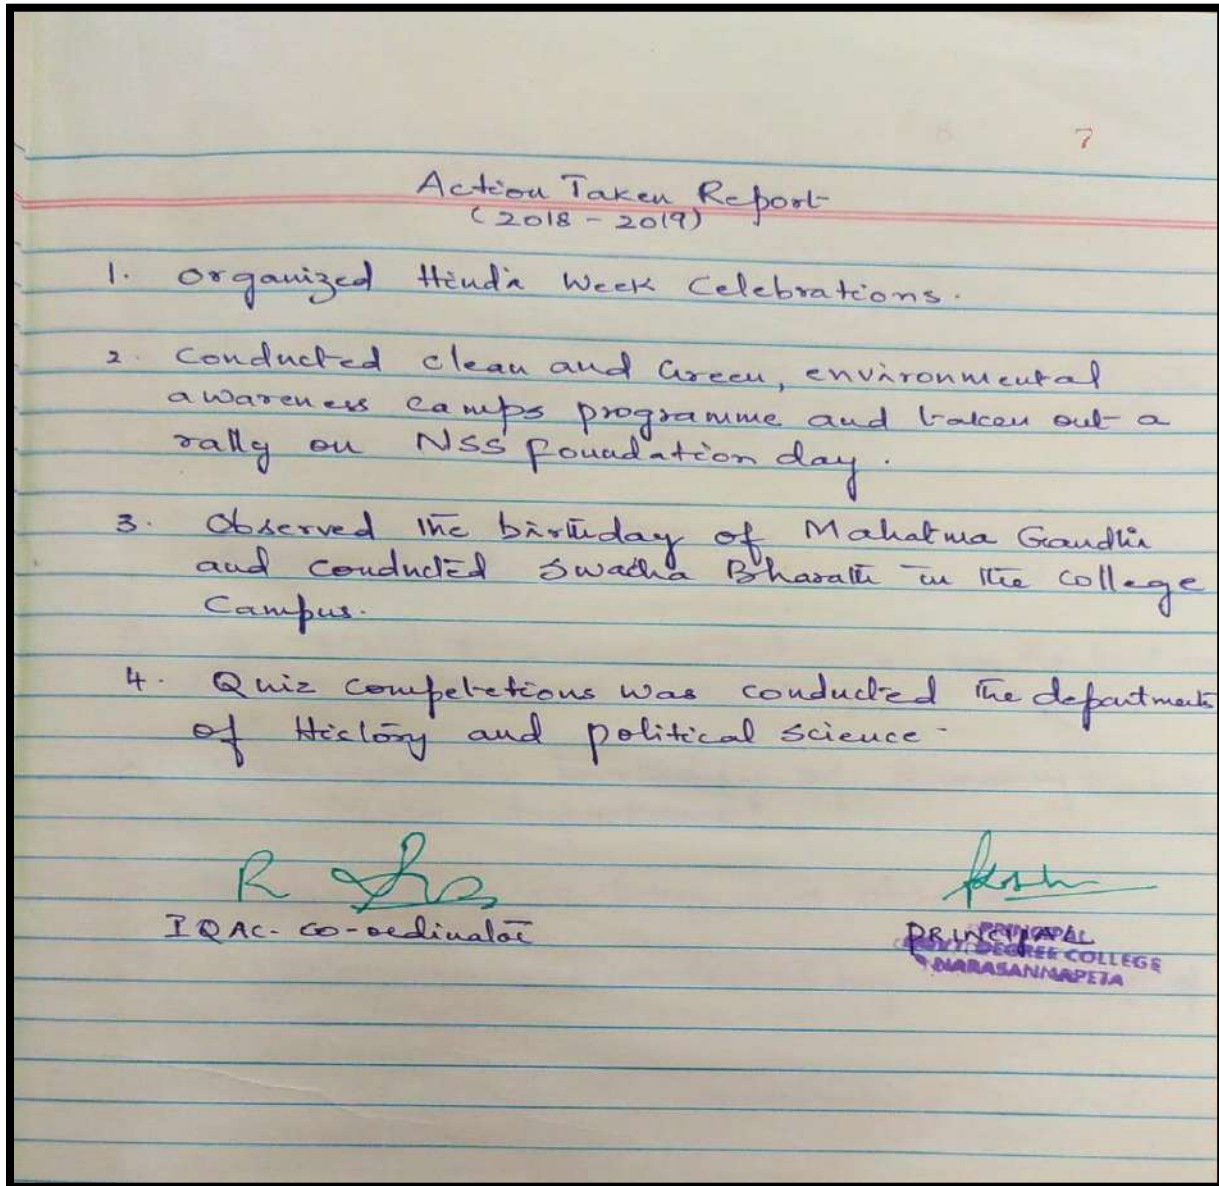 7
Action Taken Report
(2018 - 2019)
1. Organized Hindi Week Celebrations.
2. Conducted clean and Green, environmental
awareness camps programme and taken out a
rally on NSS foundation day.
3. Observed the birthday of Mahatma Gandhi
and conducted Swacha Bharath in the college
Campus.
4. Quiz competetions was conducted the department
of History and political science.
R
IQAC- co-ordinator
PRINCIPAL
PRINCIPAL
GOVT. DEGREE COLLEGE
NARASANNAPETA